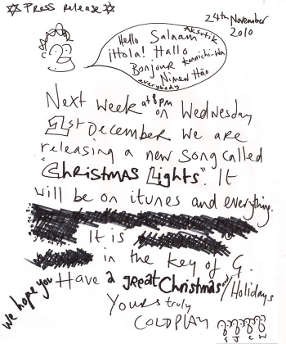 ✡ Press release ✡
24th November
2010
Hello Salaam Aksutik
¡Hola! Hallo
Bonjour Konnichi-wa
Nimen Hao
everybody
Next week at 8pm on Wednesday
1st December we are
releasing a new song called
"Christmas Lights". It
will be on itunes and everything.
It is
in the key of G.
We hope you Have a great Christmas / Holidays
Yours truly
COLDPLAY
G J C W